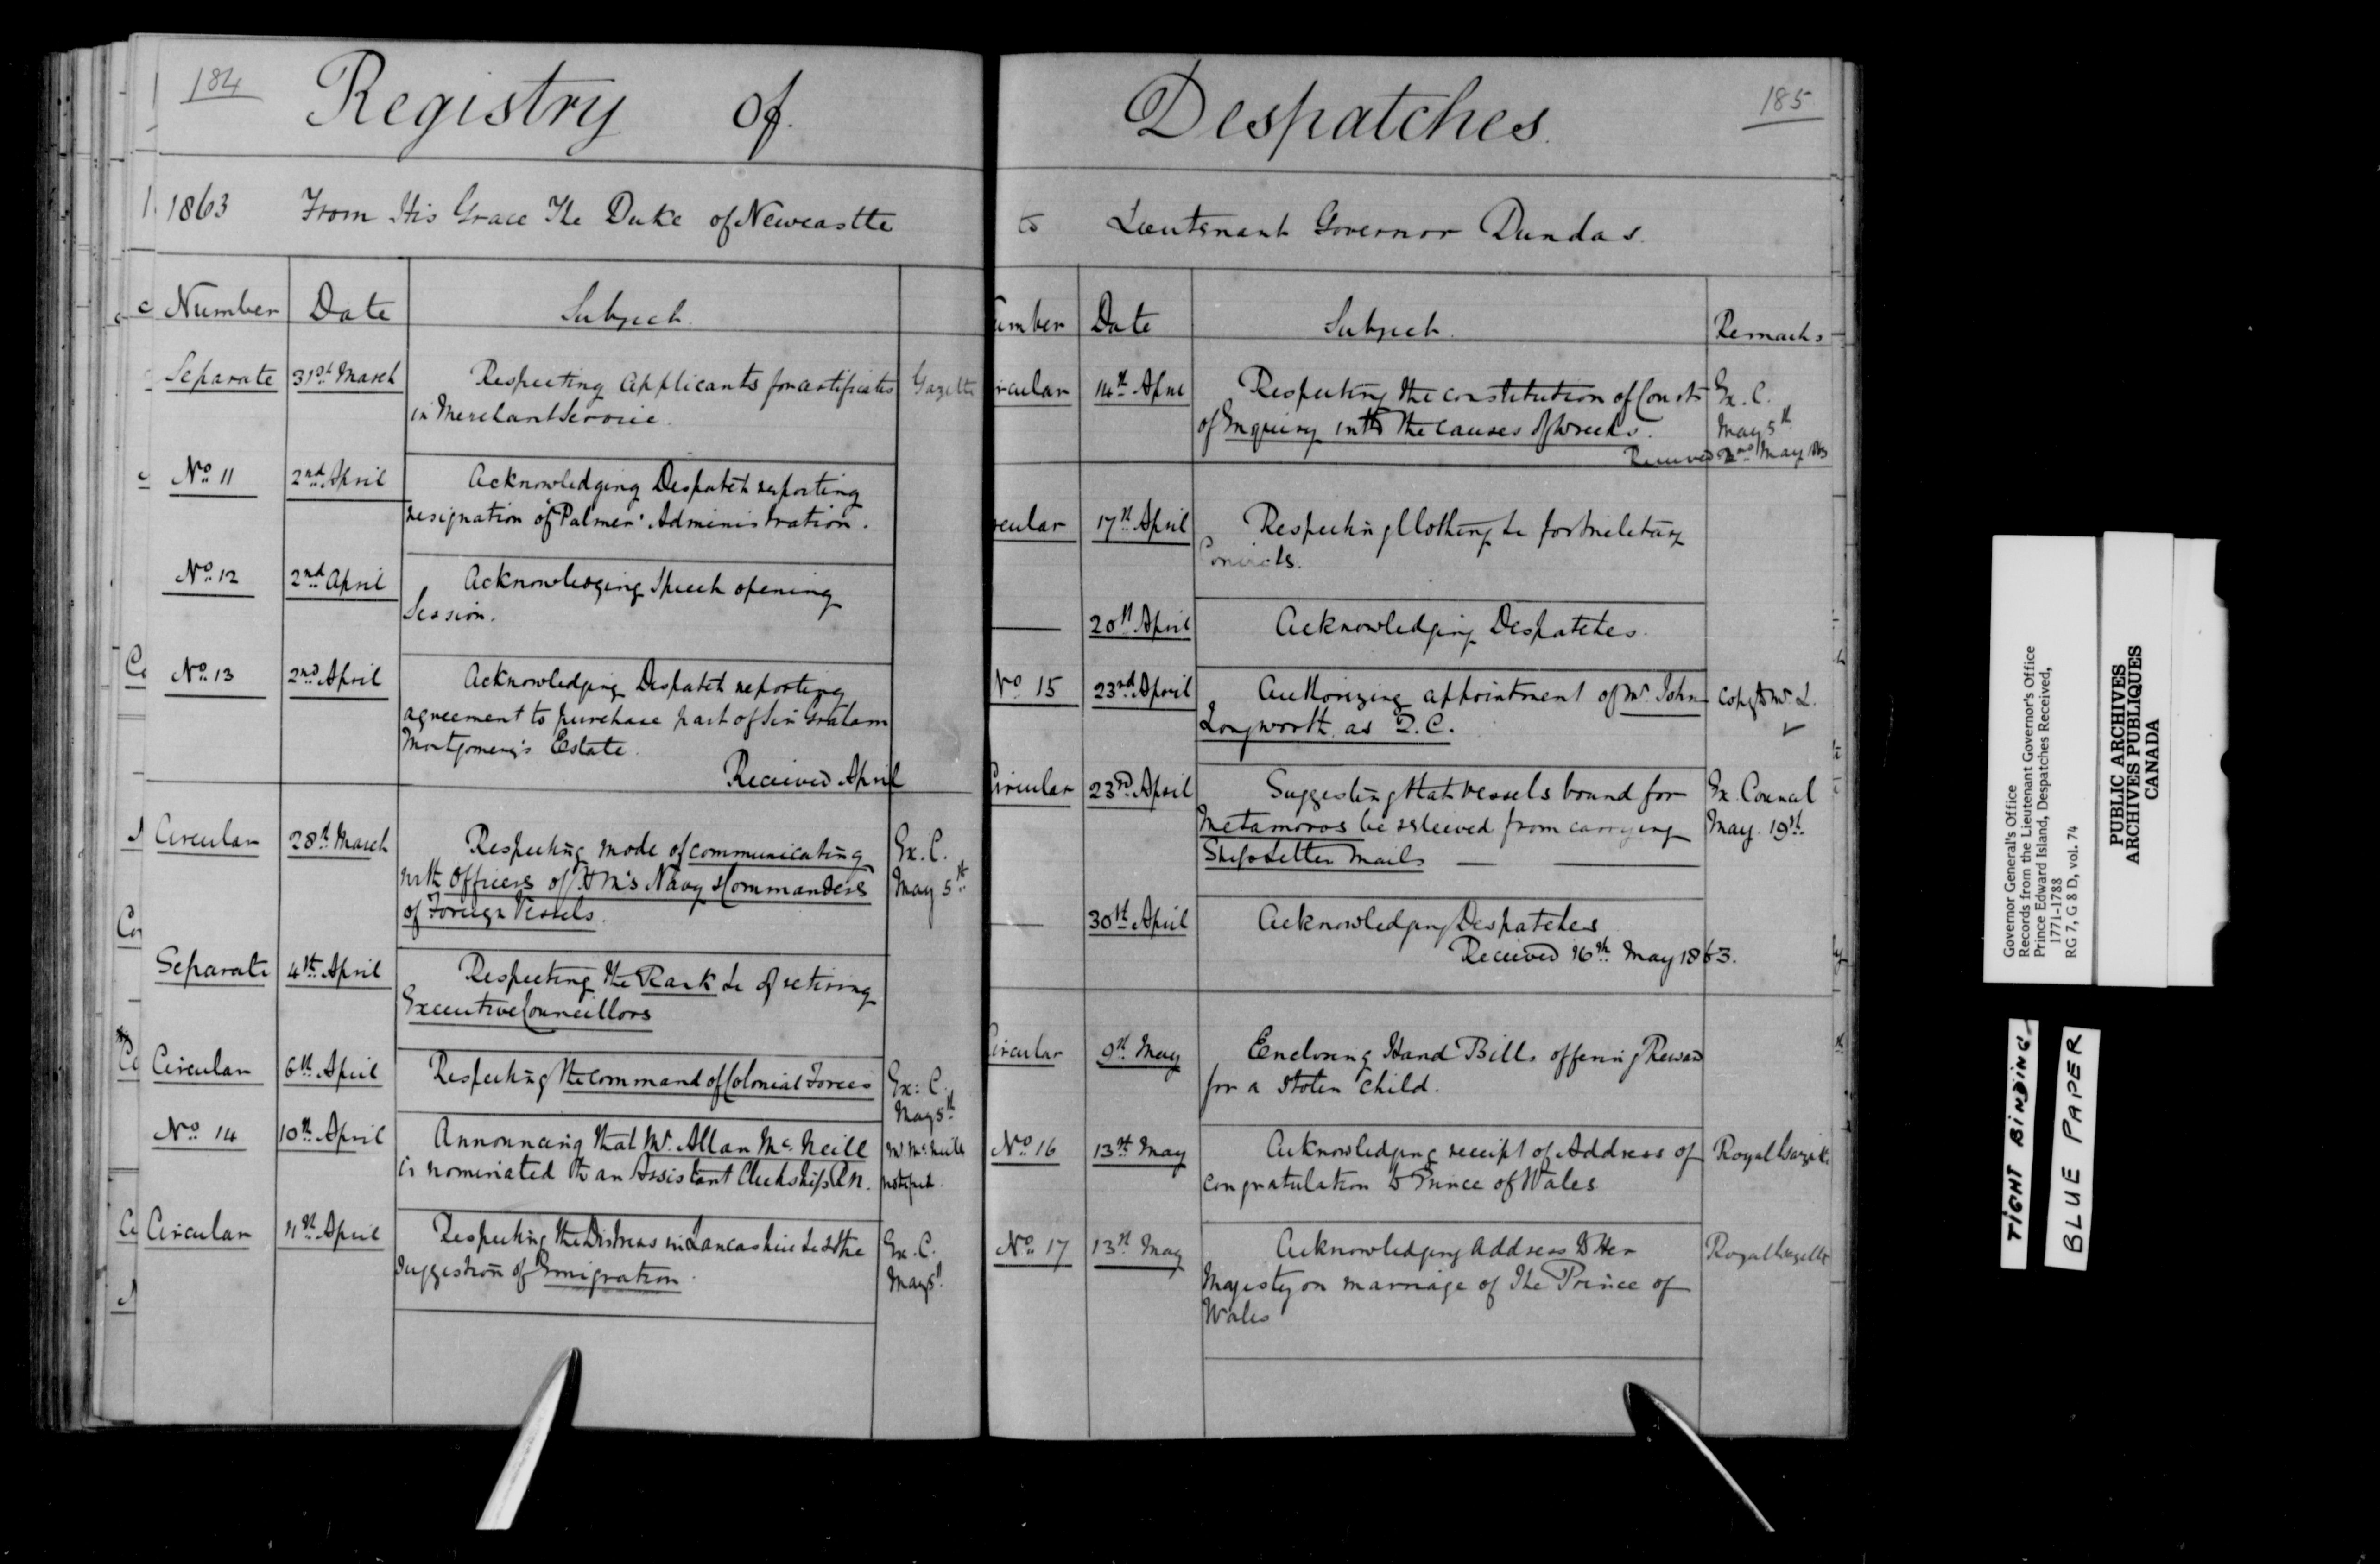 184
Registry of
1863 From His Grace The Duke of Newcastle
Number Date Subject
Separate 31st March Respecting Applicants for certificates Gazette
in Merchant Service.
No 11 2nd April Acknowledging Despatch reporting
resignation of "Palmer" Administration.
No 12 2nd April Acknowledging Speech opening
Session.
No 13 2nd April Acknowledging Despatch reporting
agreement to purchase part of Sir Graham
Montgomery's Estate.
Received April
Circular 28th March Respecting mode of communicating Ex. C.
with Officers of H M's Navy & Commanders May 5th
of Foreign Vessels.
Separate 4th April Respecting the Rank &c of retiring
Executive Councillors
Circular 6th April Respecting the command of Colonial Forces Ex: C.
May 5th
No 14 10th April Announcing that Mr. Allan McNeill Mr. McNeill
is nominated to an Assistant Clerkship R.N. notified.
Circular 11th April Respecting the Distress in Lancashire &c & the Ex. C.
suggestion of Emigration. May 5th
185
Despatches.
to Lieutenant Governor Dundas.
umber Date Subject. Remarks
rcular 14th April Respecting the constitution of Courts Ex. C.
of Inquiry into the causes of Wrecks. May 5th
Received 2nd May 1863
rcular 17th April Respecting Clothing &c for Military
Convicts.
20th April Acknowledging Despatches.
No 15 23rd April Authorizing appointment of Mr. John Copy to Mr. L.
Longworth as Q.C.
Circular 23rd April Suggesting that vessels bound for Ex. Council
Metamoros be relieved from carrying May 19th
Ship Letter Mails
30th April Acknowledging Despatches
Received 16th May 1863.
Circular 9th May Enclosing Hand Bills offering Reward
for a stolen child.
No 16 13th May Acknowledging receipt of Address of Royal Gazette
congratulation to Prince of Wales
No 17 13th May Acknowledging Address to Her Royal Gazette
Majesty on marriage of The Prince of
Wales
Governor General's Office
Records from the Lieutenant Governor's Office
Prince Edward Island, Despatches Received,
1771-1788
RG 7, G 8 D, vol. 74
PUBLIC ARCHIVES
ARCHIVES PUBLIQUES
CANADA
TIGHT BINDING
BLUE PAPER